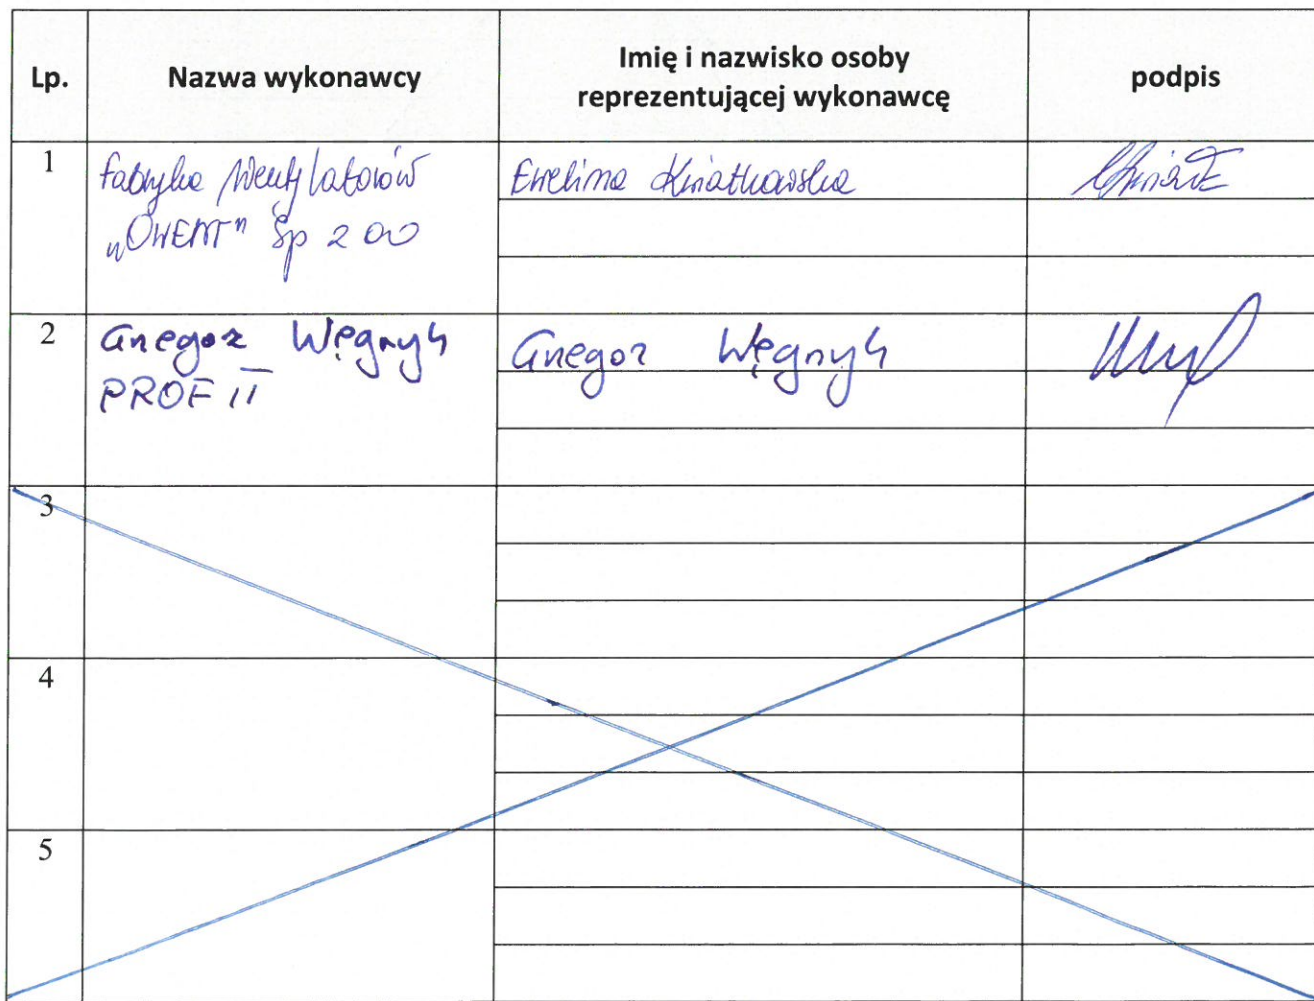 Lp.
Nazwa wykonawcy
Imię i nazwisko osoby
reprezentującej wykonawcę
podpis
1
Fabryka Wentylatorów
„OWENT" Sp z oo
Ewelina Kwiatkowska
2
Grzegorz Węgrzyn
PROFIT
Grzegorz Węgrzyn
3
4
5